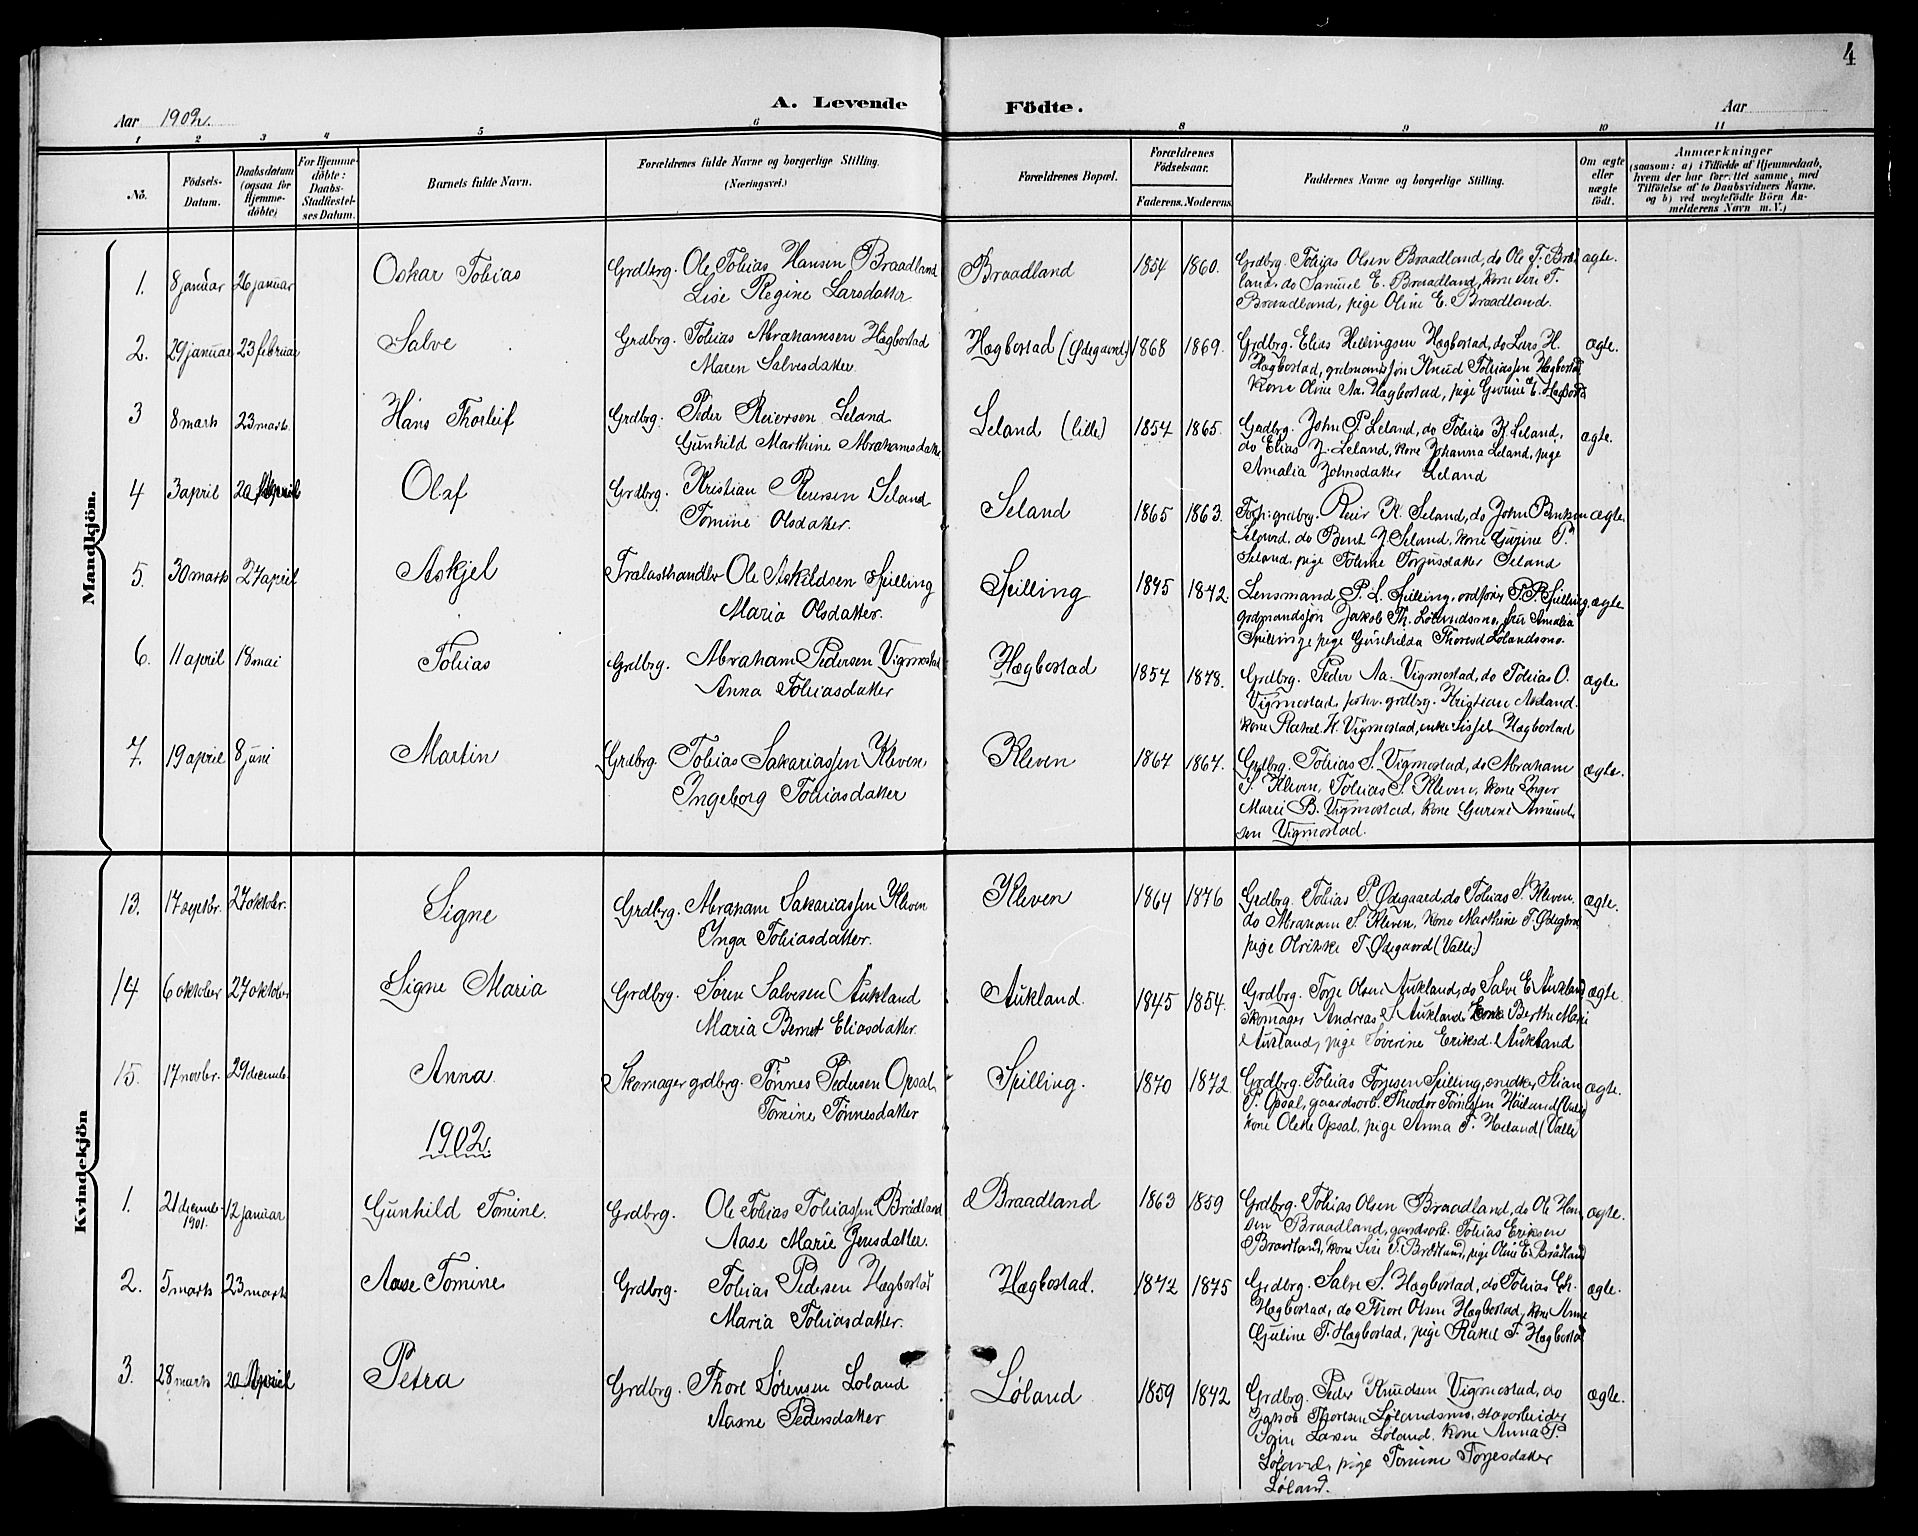 4
A. Levende Födte.
Aar 1902.
Aar
1 2 3 4 5 6 8 9 10 11
No.
Födsels-Datum.
Daabsdatum (ogsaa for Hjemme-döbte)
For Hjemme-döbte: Daabs-Stadfæstel-ses Datum.
Barnets fulde Navn.
Forældrenes fulde Navne og borgerlige Stilling.
(Næringsvei.)
Forældrenes Bopæl.
Forældrenes Födselsaar.
Faderens. Moderens.
Faddernes Navne og borgerlige Stilling.
Om ægte eller uægte födt.
Anmærkninger
(saasom: a) i Tilfælde af Hjemmedaab,
hvem der har forrettet samme, med
Tilföielse af to Daabsvidners Navne,
og b) ved uægtefödte Börn An-
melderens Navn m. V.)
Mandkjön.
1. 8 januar 26 januar Oskar Tobias Grdbrg. Ole Tobias Hansen Braadland
Lise Regine Larsdatter
Braadland 1854 1860.
Grdbrg. Tobias Olsen Braadland, do Ole T. Braad
land, do Samuel E. Braadland, kone Siri T.
Braadland, pige Oline E. Braadland.
ægte.
2. 29 januar 23 februar Salve Grdbrg. Tobias Abrahamsen Hægbostad
Maren Salvesdatter.
Hægbostad (Ødegaard) 1868 1869.
Grdbrg. Elias Hellingsen Hægbostad, do Lars H.
Hægbostad, grdmandssøn Knud Tobiassen Hægbostad
kone Oline Aa. Hægbostad, pige E. Hægbostad
ægte.
3 8 marts 23 marts. Hans Thorleif Grdbrg. Peder Reiersen Leland
Gunhild Marthine Abrahamsdatter
Leland (lille) 1854 1865.
Grdbrg. John P. Leland, do Tobias K. Leland,
do Elias J. Leland, kone Johanna Leland, pige
Amalia Johnsdatter Leland
ægte.
4 3 april 20 April Olaf Grdbrg. Kristian Reiersen Seland
Tomine Olsdatter.
Seland 1865 1863.
grdbrg. Reier K. Seland, do John
Seland, do Bent J. Seland, kone Gurine P.
Seland, pige Tomine Torjusdatter Seland
ægte.
5. 30 marts 27 april Askjel Trælasthandler Ole Askildsen Spilling
Maria Olsdatter.
Spilling 1845 1842
Lensmand P. L. Spilling, ordfører P. P. Spilling,
grdmandssøn Jakob Th. Lølandsmo, fru Amalia
Spilling, pige Gunhilda Thoresd. Lølandsmo.
ægte
6. 11 april 18 mai Tobias Grdbrg. Abraham Pedersen Vigmostad
Anna Tobiasdatter
Hægbostad 1857 1878.
Grdbrg. Peder Aa. Vigmostad, do Tobias O.
Vigmostad, grdbrg. Kristian Aasland.
kone Rakel K. Vigmostad, enke Sissel Hægbostad
ægte
7. 19 april 8 juni Martin Grdbrg. Tobias Sakariassen Kleven
Ingeborg Tobiasdatter
Kleven 1867 1867.
Grdbrg. Tobias S. Vigmostad, do Abraham
S. Kleven, Tobias S. Kleven, kone Inger
Marie B. Vigmostad, kone Gurine Amund-
sen Vigmostad.
ægte.
Kvindekjön
13. 17 septbr. 27 oktober. Signe Grdbrg. Abraham Sakariassen Kleven
Inga Tobiasdatter.
Kleven 1864 1876
Grdbrg. Tobias P. Ødegaard, do Tobias S. Kleven,
do Abraham S. Kleven, kone Marthine T. Ødegaard
pige Olrikke T. Ødegaard (Valle)
ægte.
14 6 oktober 27 oktober Signe Maria Grdbrg. Søren Salvesen Aukland
Maria Bernt Eliasdatter.
Aukland. 1845 1854.
Grdbrg. Torje Olsen Aukland, do Salve E. Aukland
skomager Andreas S. Aukland kone Berthe Marie
Aukland, pige Søverine Eriksd. Aukland
ægte.
15. 17 novbr. 29 decemb. Anna Skomager grdbrg. Tønnes Pedersen Opsal,
Tomine Tønnesdatter
Spilling. 1870 1872
Grdbrg. Tobias Torjesen Spilling, snedker Stian
P. Opsal, gaardsarb. Theodor Høiland (Valle)
kone Olette Opsal, pige Anna T. Høiland (Valle)
ægte.
1902.
1. 21 decemb. 1901. 12 januar Gunhild Tomine. Grdbrg. Ole Tobias Tobiassen Brådland
Aase Marie Jensdatter.
Braadland 1863 1859
Grdbrg. Tobias Olsen Braadland, do Ole Han
sen Braadland, gaardsarb. Tobias Eriksen
Braadland, kone Siri T. Brådland, pige Oline E. Brådland
ægte.
2. 5 marts 23 marts Aase Tomine Grdbrg. Tobias Pedersen Hægbostad
Maria Tobiasdatter.
Hægbostad. 1872 1875
Grdbrg. Salve S. Hægbostad, do Tobias Ch.
Hægbostad, do Thore Olsen Hægbostad, kone Anne
Guline T. Hægbostad, pige Rakel T. Hægbostad
ægte.
3. 28 marts 20 April Petra Grdbrg. Thore Sørensen Løland
Aasne Pedersdatter
Løland 1859 1842
Grdbrg. Peder Knudsen Vigmostad, do
Jakob Thoresen Lølandsmo, stavarbeider
Larsen Løland, kone Anna P.
Løland, pige Tomine Torjesdatter
Løland.
ægte.